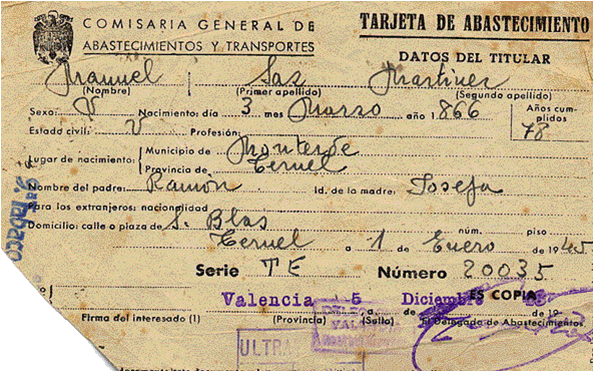 COMISARIA GENERAL DE
ABASTECIMIENTOS Y TRANSPORTES
TARJETA DE ABASTECIMIENTO
DATOS DEL TITULAR
Manuel Saz Martinez
(Nombre) (Primer apellido) (Segundo apellido)
Sexo: V Nacimiento: día 3 mes Marzo año 1.866
Años cumplidos 78
Estado civil: V Profesión:
Lugar de nacimiento: Municipio de Monterde
Provincia de Teruel
Nombre del padre: Ramón Id. de la madre: Josefa
Para los extranjeros: nacionalidad
Domicilio: calle o plaza de S. Blas núm. piso
Teruel a 1 de Enero de 1945
Serie TE Número 20035
Tabaco
Valencia 5 Diciemb ES COPIA
Firma del interesado (1) (Provincia) (Sello) El Delegado de Abastecimientos,
a de de 19
ULTRA